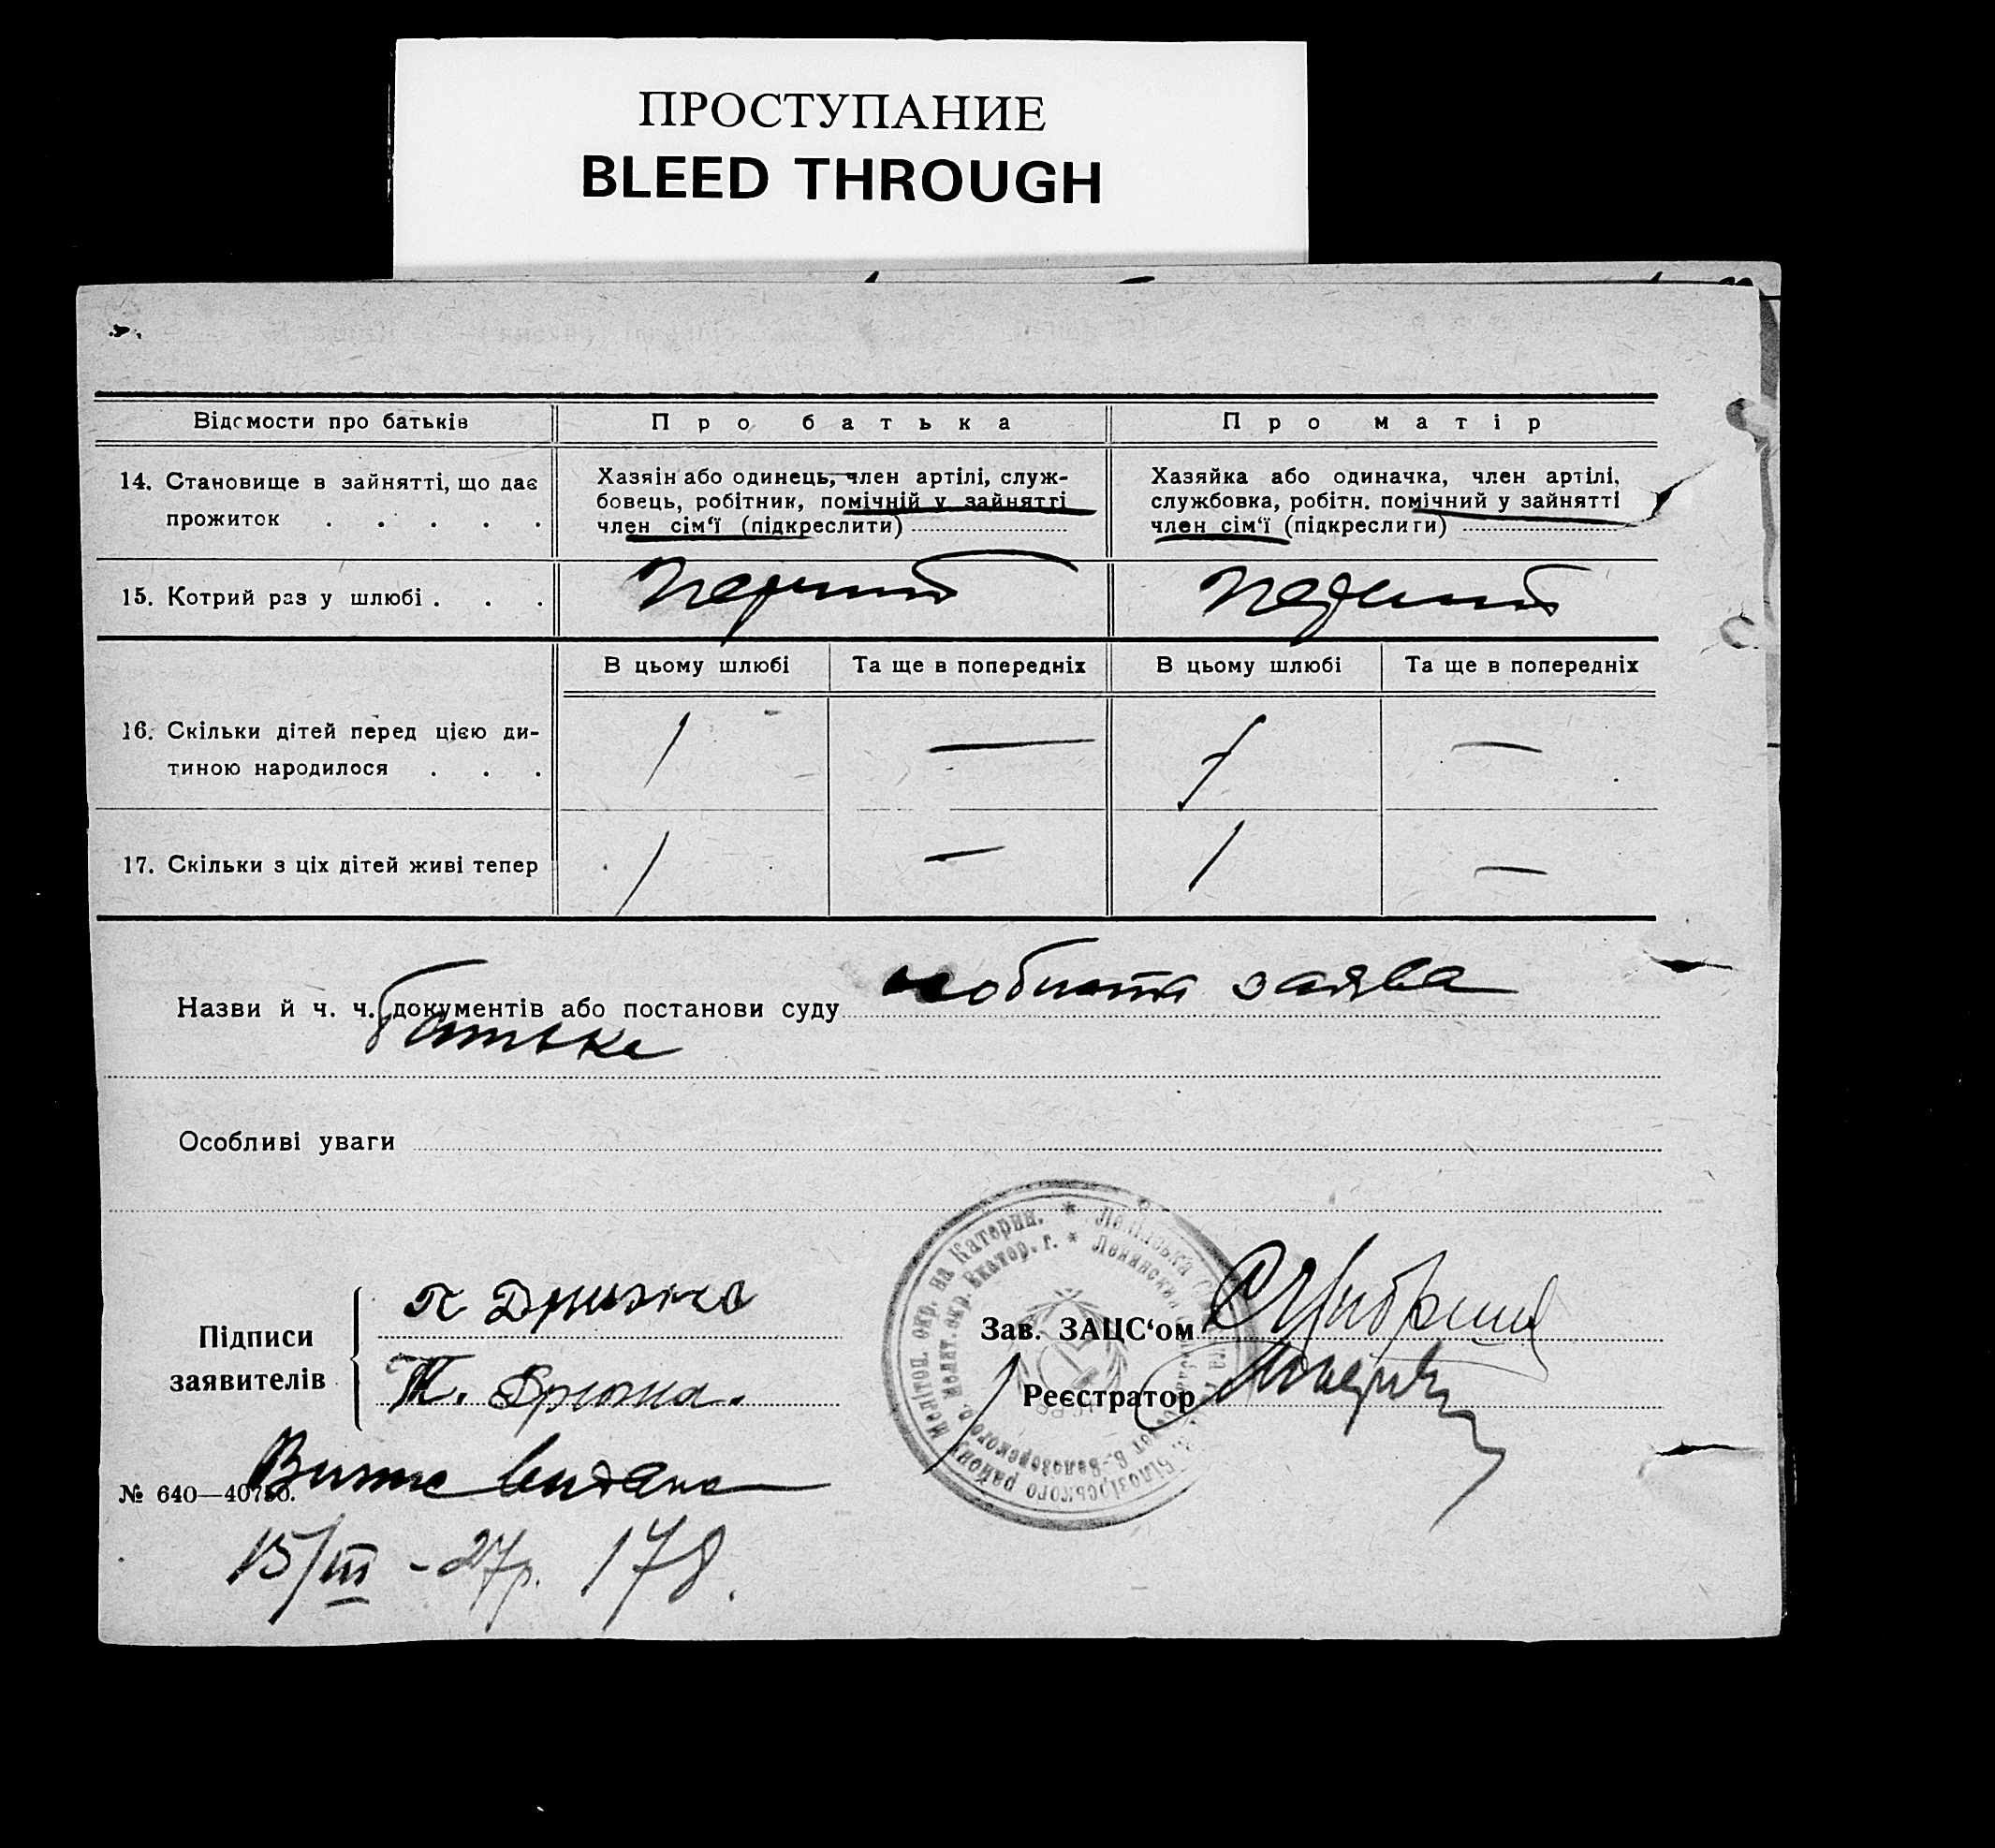 ПРОСТУПАНИЕ
BLEED THROUGH
Відомости про батьків
Про батька
Про матір
14. Становище в зайнятті, що дає
прожиток . . . . .
Хазяїн або одинець, член артілі, служ-
бовець, робітник, помічній у зайнятті
член сім‘ї (підкреслити)
Хазяйка або одиначка, член артілі,
службовка, робітн. помічний у зайнятті
член сім‘ї (підкреслити)
15. Котрий раз у шлюбі . . .
Перший
Перший
В цьому шлюбі
Та ще в попередніх
В цьому шлюбі
Та ще в попередніх
16. Скільки дітей перед цією ди-
тиною народилося . . .
1
—
1
—
17. Скільки з ціх дітей живі тепер
1
—
1
—
Назви й ч. ч. документів або постанови суду особиста заява
батька
Особливі уваги
Підписи
заявителів
Т.
Зав. ЗАЦС‘ом
Реєстратор
№ 640—40750.
видана
15/III - 27р. 178.